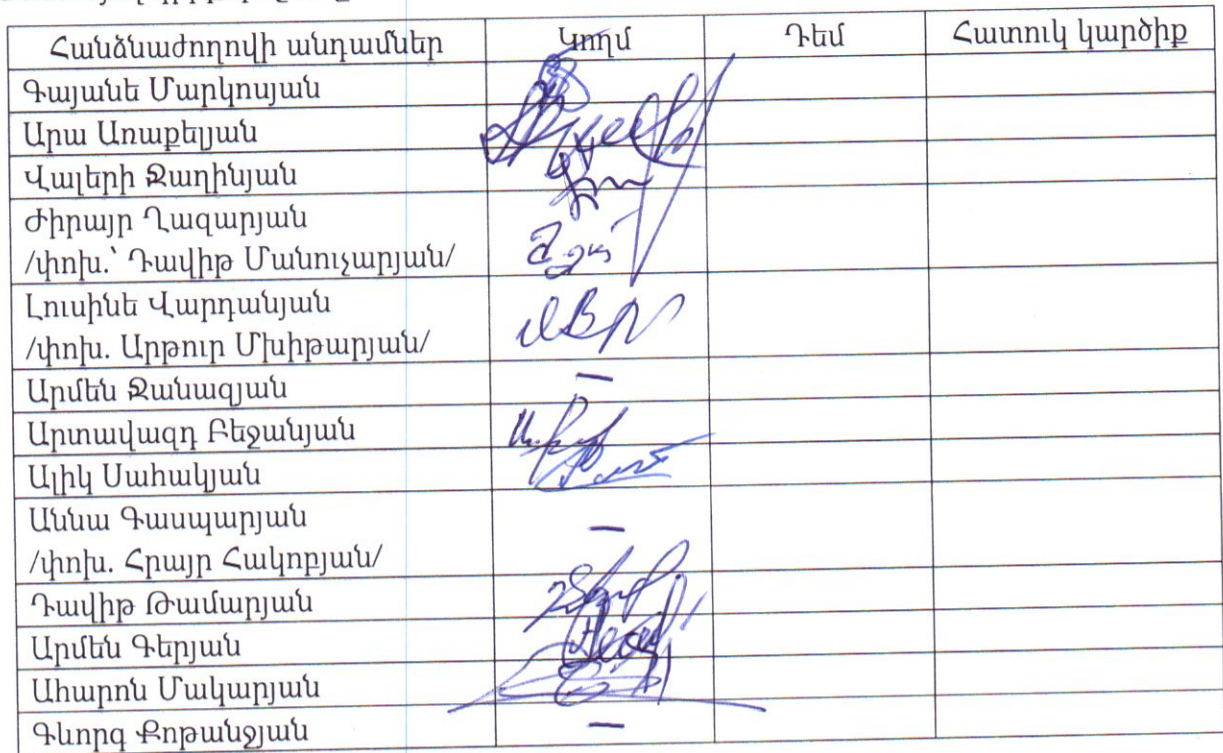 Հանձնաժողովի անդամներ Կողմ Դեմ Հատուկ կարծիք
Գայանե Մարկոսյան
Արա Առաքելյան
Վալերի Ջաղինյան
Ժիրայր Ղազարյան
/փոխ.՝ Դավիթ Մանուչարյան/
Լուսինե Վարդանյան
/փոխ. Արթուր Մխիթարյան/
Արմեն Ջանազյան —
Արտավազդ Բեջանյան
Ալիկ Սահակյան
Աննա Գասպարյան
/փոխ. Հրայր Հակոբյան/ —
Դավիթ Թամարյան
Արմեն Գերյան
Ահարոն Մակարյան
Գևորգ Քոթանջյան —